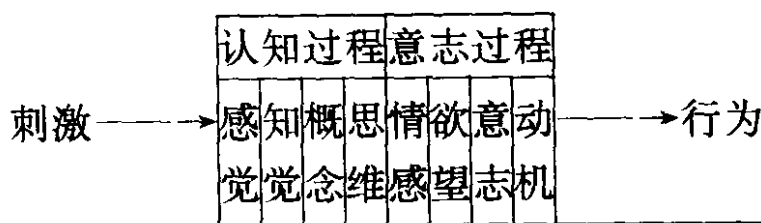 认知过程 意志过程
刺激 感觉 知觉 概念 思维 情感 欲望 意志 动机 行为